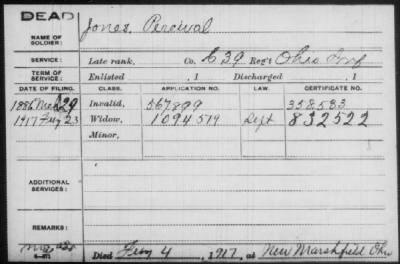 DEAD
NAME OF SOLDIER: Jones, Percival
SERVICE: Late rank, Co. C 39 Reg't Ohio Inf
TERM OF SERVICE: Enlisted , 1 Discharged , 1
DATE OF FILING. CLASS. APPLICATION NO. LAW. CERTIFICATE NO.
1886 29 Invalid, 567,899 358533
1917 Feb 23 Widow, 1094519 832522
Minor,
ADDITIONAL SERVICES:
REMARKS:
Died Feby 4, 1917, at New Marshfield Ohio